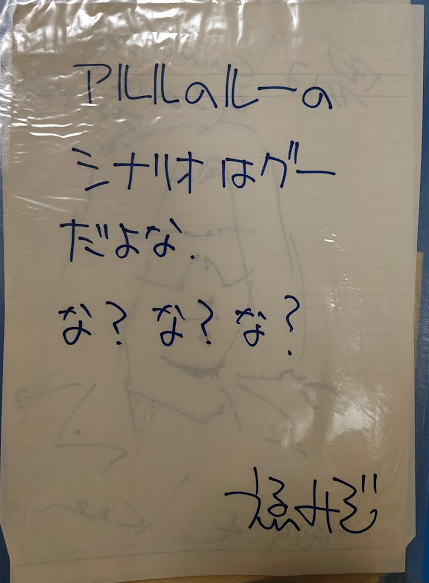 アルルのルーの
シナリオはグー
だよな.
な？な？な？